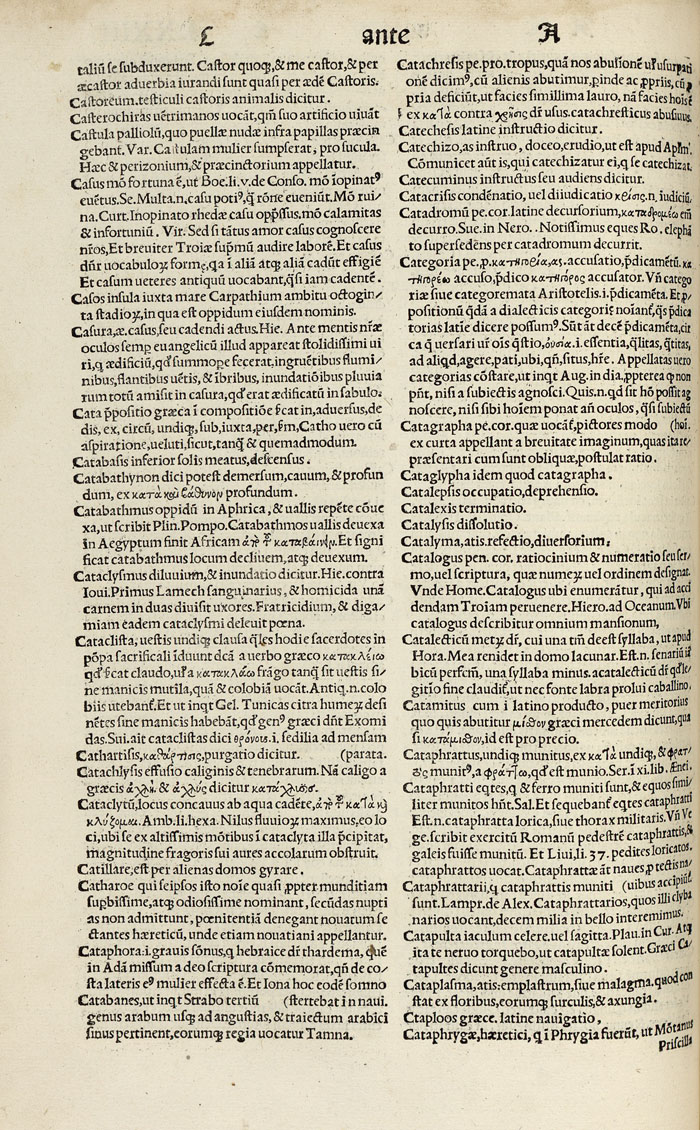 C ante A
taliū se subduxerunt. Castor quoq;,& me castor,& per
æcastor aduerbia iurandi sunt quasi per ædē Castoris.
Castoreum.testiculi castoris animalis dicitur.
Casterochiras uētrimanos uocāt,qm̄ suo artificio uiuāt
Castula palliolū,quo puellæ nudæ infra papillas præcin
gebant. Var. Castulam mulier sumpserat, pro sucula.
Hæc & perizonium,& præcinctorium appellatur.
Casus mō fortuna ē,ut Boe.li.v.de Conso. mō īopinatꝰ
euētus.Se.Multa.n.casu potiꝰ,q̄ rōne eueniūt.Mō rui/
na.Curt.Inopinato rhedæ casu opp̄ssus,mō calamitas
& infortuniū. Vir. Sed si tātus amor casus cognoscere
nr̄os,Et breuiter Troiæ sup̄mū audire laborē.Et casus
dn̄r uocabuloꝝ formę,qa ī aliā atq; aliā cadūt effigiē
Et casum ueteres antiquū uocabant,q̄si iam cadentē.
Casos insula iuxta mare Carpathium ambitu octogin/
ta stadioꝝ,in qua est oppidum eiusdem nominis.
Casura,æ.casus,seu cadendi actus.Hie. Ante mentis nr̄æ
oculos semp euangelicū illud appareat stolidissimi ui
ri,q ædificiū,qd̓ summope fecerat,ingruētibus flumi/
nibus,flantibus uētis,& ībribus, inundatiōibus pluuia
rum totū amisit in casura,qd̓ erat ædificatū in sabulo.
Cata p̄positio græca ī compositiōe ſcat in,aduersus,de
dis, ex, circū, undiq;,sub,iuxta,per,ſm,Catho uero cū
aspiratione,ueluti,sicut,tanq̄ & quemadmodum.
Catabasis inferior solis meatus,descensus.
Catabathynon dici potest demersum,cauum,& profun
dum, ex κατὰ καὶ βάθυνον profundum.
Catabathmus oppidū in Aphrica,& uallis repēte cōue
xa,ut scribit Plin.Pompo.Catabathmos uallis deuexa
in Aegyptum finit Africam ἀπὸ τȣ̃ καταβαίνειν. Et signi
ficat catabathmus locum decliuem,atq; deuexum.
Cataclysmus diluuium,& inundatio dicitur.Hie.contra
Ioui.Primus Lamech sanguinarius,& homicida unā
carnem in duas diuisit uxores.Fratricidium,& diga/
miam eadem cataclysmi deleuit pœna.
Cataclista,uestis undiq; clausa q̄les hodie sacerdotes in
pōpa sacrificali īduunt dcā a uerbo græco κατακλείω
qd̓ ſcat claudo,ul̓ a κατακλάω frāgo tanq̄ sit uestis si/
ne manicis mutila,quā & colobiā uocāt.Antiq.n.colo
biis utebant̄.Et ut inqt Gel. Tunicas citra humeꝝ desi
nētes sine manicis habebāt,qd̓ genꝰ græci dn̄t Exomi
das.Sui.ait cataclistas dici θρόνοις.i.sedilia ad mensam
Cathartisis,καθάρτισις,purgatio dicitur. (parata.
Catachlysis effusio caliginis & tenebrarum. Nā caligo a
græcis ἀχλὴ & ἀχλύς dicitur καταχλυσις.
Cataclytū,locus concauus ab aqua cadēte,ἀπὸ τȣ̃ κατὰ κὶ
κλύζομαι.Amb.li.hexa.Nilus fluuioꝝ maximus,eo lo
ci,ubi se ex altissimis mōtibus ī cataclyta illa p̄cipitat,
magnitudine fragoris sui aures accolarum obstruit.
Catillare,est per alienas domos gyrare.
Catharoe qui seipsos isto noīe quasi ꝓpter munditiam
supbissime,atq; odiosissime nominant, secūdas nupti
as non admittunt, pœnitentiā denegant nouatum se
ctantes hæreticū, unde etiam nouatiani appellantur.
Cataphora:i.grauis sōnus,q hebraice dr̄ thardema, quē
in Adā missum a deo scriptura cōmemorat,qn̄ de co/
sta lateris eꝰ mulier effecta ē. Et Iona hoc eodē somno
Catabanes,ut inqt Strabo tertiū (stertebat in naui.
genus arabum usq; ad angustias,& traiectum arabici
sinus pertinent,eorumq; regia uocatur Tamna.
Catachresis pe.pro.tropus,quā nos abusionē ul̓ usurpati
onē dicimꝰ,cū alienis abutimur,ꝓinde ac ꝓpriis,cū ꝓ
pria deficiūt,ut facies simillima lauro, nā facies hoīs ē
ex κατὰ contra χρῆσις dr̄ usus.catachresticus abusiuus.
Catechesis latine instructio dicitur.
Catechizo,as instruo, doceo,erudio,ut est apud Aplm̄.
Cōmunicet aūt is,qui catechizatur ei,q se catechizat.
Catecuminus instructus seu audiens dicitur.
Catacrisis condēnatio, uel diiudicatio κρίσις.n. iudiciū.
Catadromū pe.cor.latine decursorium,καταδρομέω em̄
decurro.Sue.in Nero. Notissimus eques Ro. elephā
to supersedens per catadromum decurrit.
Categoria pe.,p.κατηγορία,ας.accusatio,p̄dicamētū.κα
τηγορέω accuso,p̄dico κατήγορος accusator. Vn̄ catego
riæ siue categoremata Aristotelis.i.p̄dicamēta.Et ꝓ/
positionū qdā a dialecticis categoricę noīant̄,q̄s p̄dica
torias latīe dicere possumꝰ.Sūt āt decē p̄dicamēta,cir
ca q uersari ur̄ oīs q̄stio,ȣσία.i. essentia,q̄litas,q̄titas,
ad aliqd,agere,pati,ubi,qn̄,situs,hr̄e. Appellatas uero
categorias cōstare,ut inqt Aug.in dia.ꝓpterea q non
pn̄t, nisi a subiectis agnosci.Quis.n.qd sit hō possit ag
noscere, nisi sibi hoīem ponat an̄ oculos, q̄si subiectū
Catagrapha pe.cor.quæ uocāt̄,pictores modo (hoī.
ex curta appellant a breuitate imaginum,quas ita re/
præsentari cum sunt obliquæ,postulat ratio.
Cataglypha idem quod catagrapha.
Catalepsis occupatio,deprehensio.
Catalexis terminatio.
Catalysis dissolutio.
Catalyma,atis.refectio,diuersorium.
Catalogus pen. cor. ratiocinium & numeratio seu ser/
mo,uel scriptura, quæ numeꝝ uel ordinem designat.
Vnde Home.Catalogus ubi enumerātur, qui ad acci
dendam Troiam peruenere.Hiero.ad Oceanum.Vbi
catalogus describitur omnium mansionum,
Catalecticū metꝝ dr̄, cui una tm̄ deest syllaba, ut apud
Hora.Mea renidet in domo lacunar.Est.n. senariū iā
bicū perfectū,una syllaba minus.acatalecticū dr̄ qd̓ le/
gitīo fine claudit̄,ut nec fonte labra prolui caballino.
Catamitus cum i latino producto, puer meritorius
quo quis abutitur μίσθον græci mercedem dicunt,qua
si κατάμισθον,id est pro precio.
Cataphrattus,undiq; munitus,ex κατὰ undiq;,& φρατ/
τὸς munitꝰ,a φράττω,qd̓ est munio.Ser.ī xi.lib. Ænei.
Cataphratti eq̄tes,q & ferro muniti sunt,& equos simi/
liter munitos hn̄t.Sal.Et sequebant̄ eq̄tes cataphratti
Est.n.cataphratta lorica,siue thorax militaris.Vn̄ Ve
ge.scribit exercitū Romanū pedestrē cataphrattis,&
galeis fuisse munitū. Et Liui,li. 37. pedites loricatos.
cataphrattos uocat.Cataphrattæ āt naues,ꝓ tectis na/
Cataphrattarii,q cataphrattis muniti (uibus accipiūt̄
sunt.Lampr.de Alex.Cataphrattarios,quos illi clyba
narios uocant,decem milia in bello interemimus.
Catapulta iaculum celere.uel sagitta.Plau.in Cur. Atq
ita te neruo torquebo,ut catapultæ solent.Græci Ca/
tapultes dicunt genere masculino.
Cataplasma,atis:emplastrum,siue malagma. quod con
stat ex floribus,eorumq; surculis,& axungia.
Ctaploos græce. latine nauigatio,
Cataphrygæ,hæretici, q ī Phrygia fuerūt, ut Mōtanus
Priscilla